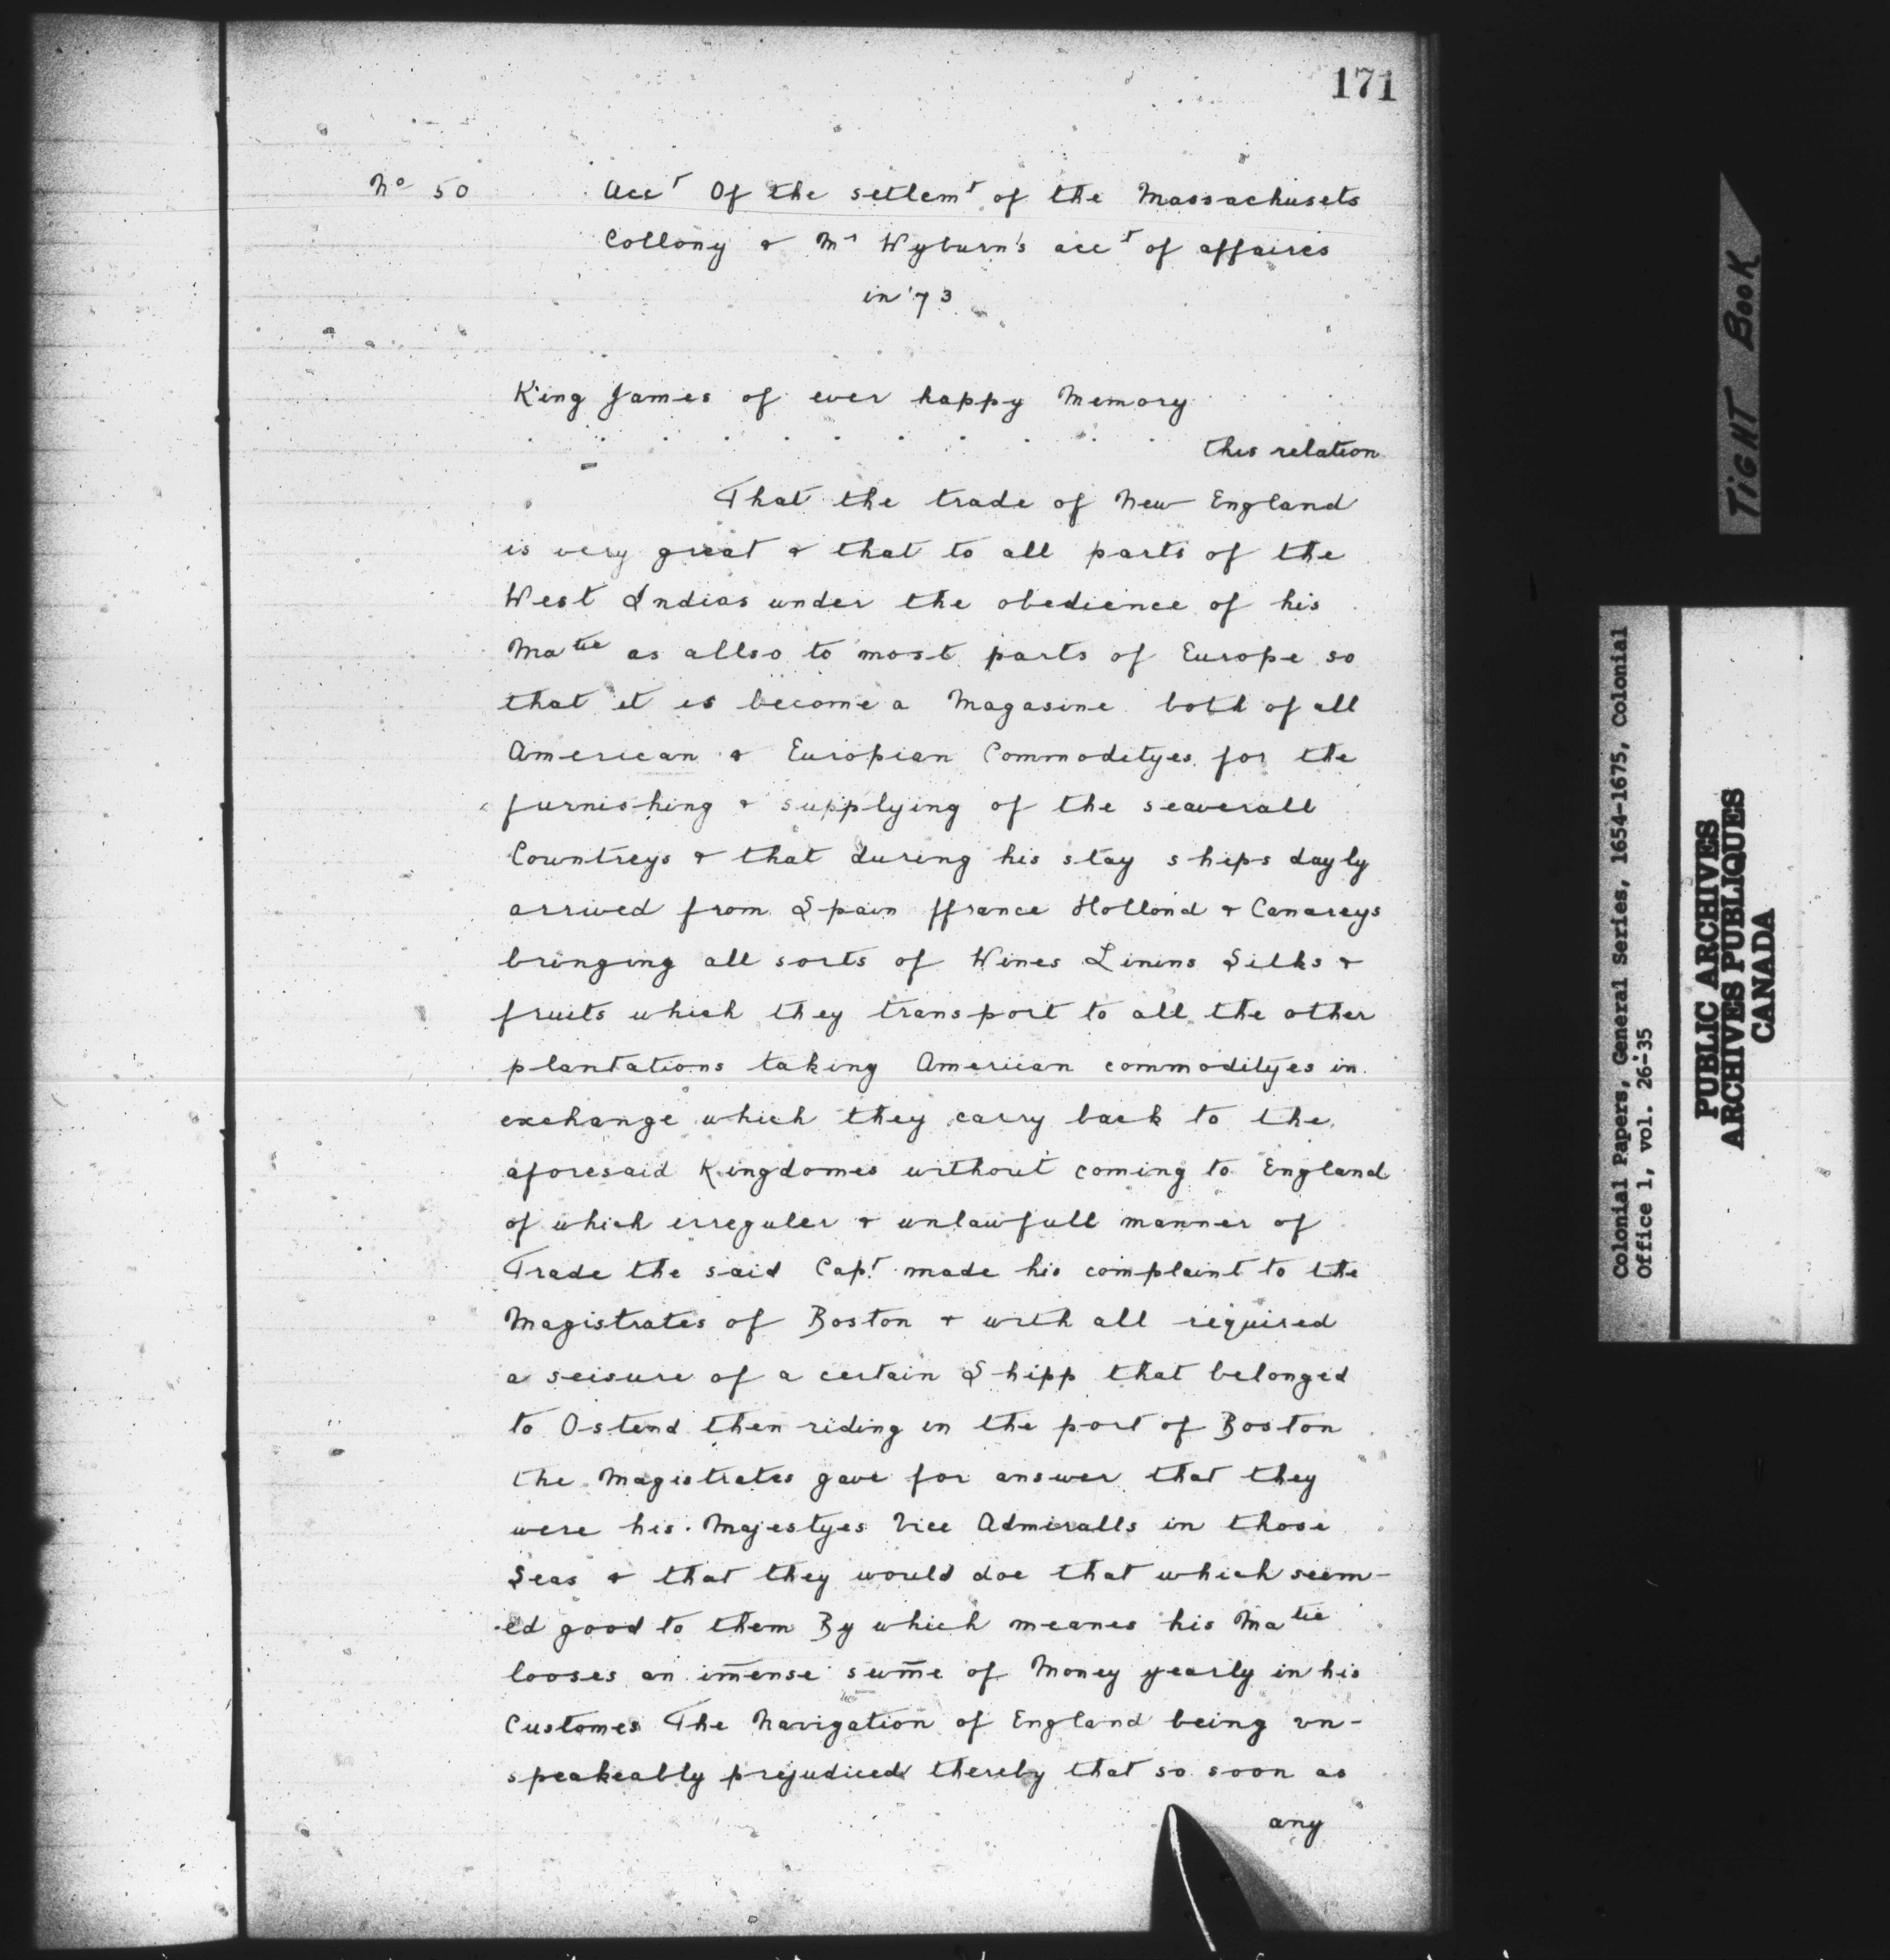 171
No 50 Acct Of the setlemt of the Massachusets
Collony & Mr Wyburn's acct of affaires
in '73
King James of ever happy Memory
. . . . . . . . . . . this relation
That the trade of New England
is very great & that to all parts of the
West Indias under the obedience of his
Matie as allso to most parts of Europe so
that it is become a Magasine both of all
American & Europian Commodityes for the
furnishing & supplying of the seaverall
Countreys & that during his stay ships dayly
arrived from Spain ffrance Hollond & Canareys
bringing all sorts of Wines Linins Silks &
fruits which they transport to all the other
plantations taking American commodityes in
exchange which they carry back to the
aforesaid Kingdomes without coming to England
of which irreguler & unlawfull manner of
Trade the said Capt made his complaint to the
Magistrates of Boston & with all required
a seisure of a certain Shipp that belonged
to Ostend then riding in the port of Boston
the Magistrates gave for answer that they
were his Majestyes Vice Admiralls in those
Seas & that they would doe that which seem-
ed good to them By which meanes his Matie
looses an im̄ense sum̄e of Money yearly in his
Customes The Navigation of England being vn-
speakeably prejudiced thereby that so soon as
any
TIGHT BOOK
Colonial Papers, General Series, 1654-1675, Colonial
Office 1, vol. 26-35
PUBLIC ARCHIVES
ARCHIVES PUBLIQUES
CANADA